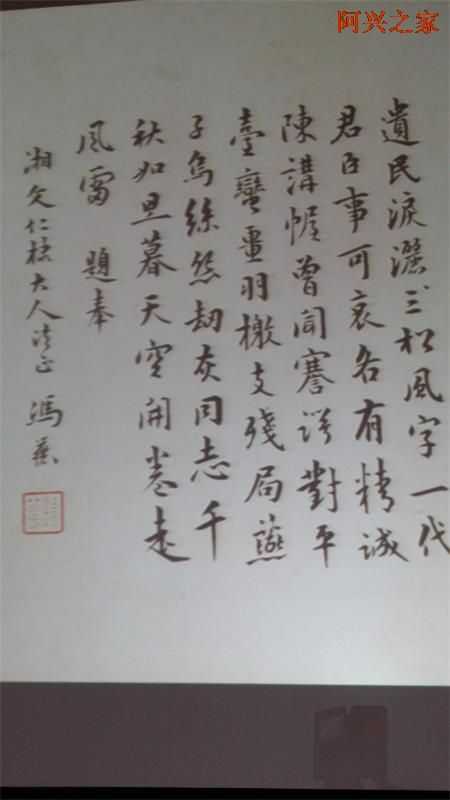 阿兴之家
遺民淚灑松風字一代
君臣事可哀各有精誠
陳講幄曾聞謇諤對平
臺蠻畺羽檄支殘局燕
子烏絲然劫灰同志千
秋如旦暮天空開卷走
風雷 題奉
湘文仁棣大人法正 馮